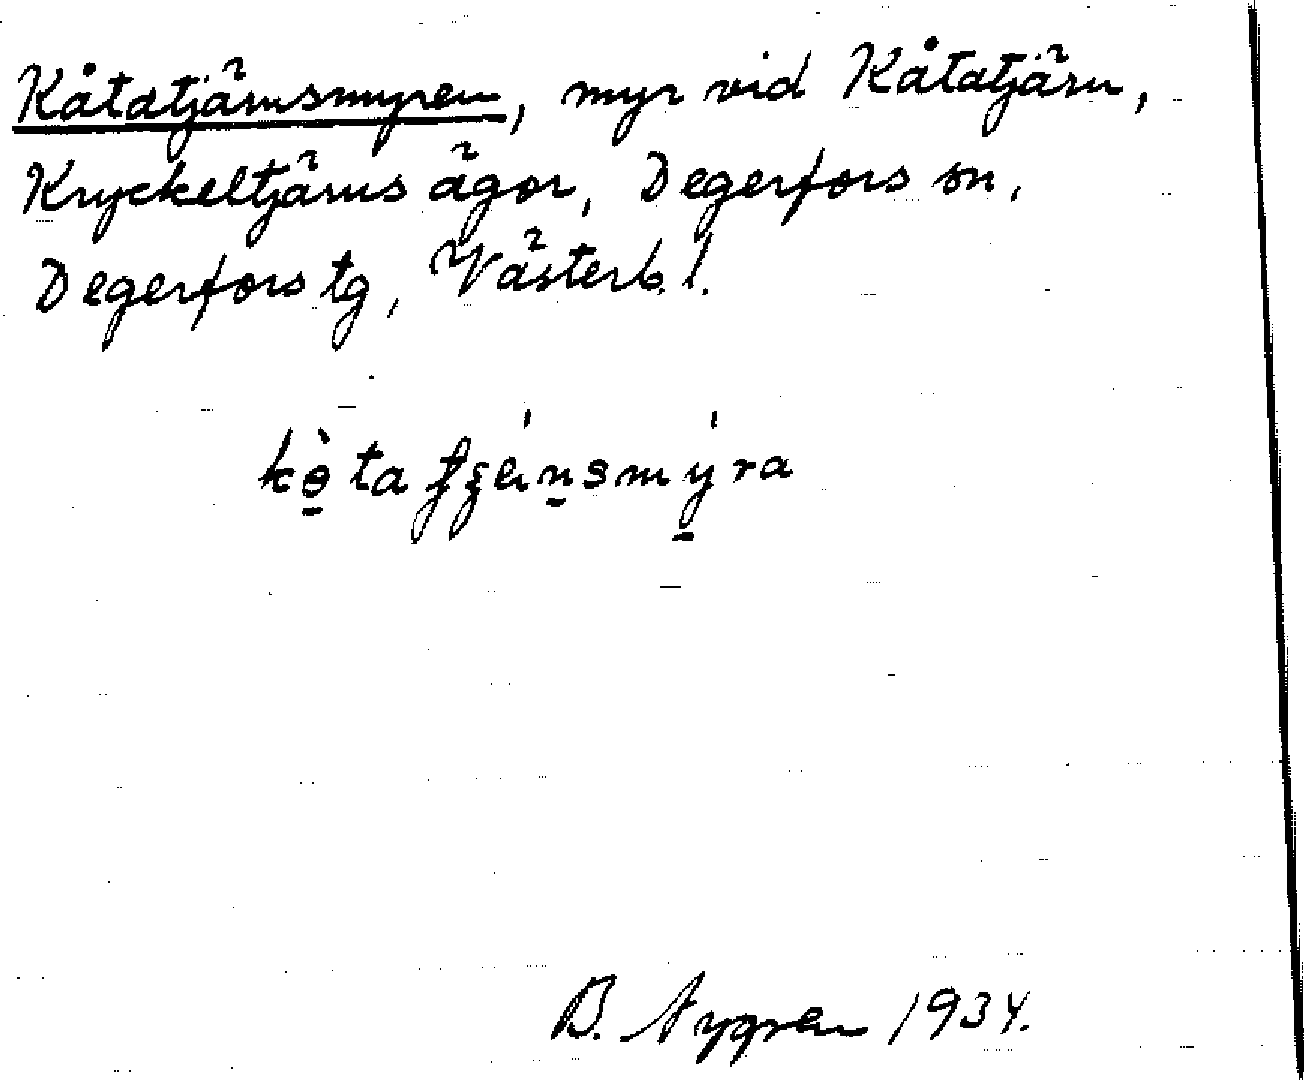 Kåtatjärnsmyren, myr vid Kåtatjärn,
Kryckeltjärns ägor, Degerfors sn,
Degerfors tg, Västerb. l.
B. Nygren 1934.